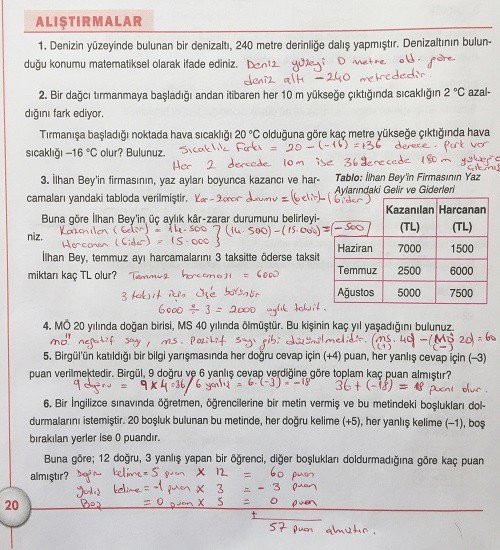 ALIŞTIRMALAR
1. Denizin yüzeyinde bulunan bir denizaltı, 240 metre derinliğe dalış yapmıştır. Denizaltının bulun-
duğu konumu matematiksel olarak ifade ediniz. Deniz yüzeyi 0 metre old. göre
deniz altı -240 metrededir.
2. Bir dağcı tırmanmaya başladığı andan itibaren her 10 m yükseğe çıktığında sıcaklığın 2 °C azal-
dığını fark ediyor.
Tırmanışa başladığı noktada hava sıcaklığı 20 °C olduğuna göre kaç metre yükseğe çıktığında hava
sıcaklığı –16 °C olur? Bulunuz. Sıcaklık Farkı = 20 - (-16) = +36 derece. fark var
Her 2 derecede 10m ise 36 derecede 180 m yükseğe
çıkmış
3. İlhan Bey'in firmasının, yaz ayları boyunca kazancı ve har-
camaları yandaki tabloda verilmiştir. Kar-zarar durumu = (Gelir) - (Gider)
Buna göre İlhan Bey'in üç aylık kâr-zarar durumunu belirleyi-
niz. Kazanılan (Gelir) = 14.500 } (14.500) - (15.000) = -500
Harcanan (Gider) = 15.000
İlhan Bey, temmuz ayı harcamalarını 3 taksitte öderse taksit
miktarı kaç TL olur? Temmuz harcaması = 6000
3 taksit için üç'e bölünür
6000 ÷ 3 = 2000 aylık taksit.
Tablo: İlhan Bey'in Firmasının Yaz
Aylarındaki Gelir ve Giderleri
Kazanılan (TL) Harcanan (TL)
Haziran 7000 1500
Temmuz 2500 6000
Ağustos 5000 7500
4. MÖ 20 yılında doğan birisi, MS 40 yılında ölmüştür. Bu kişinin kaç yıl yaşadığını bulunuz.
MÖ negatif sayı, MS. Pozitif sayı gibi düşünülmelidir. (MS. 40) - (MÖ 20) = 60
(+) (-)
5. Birgül'ün katıldığı bir bilgi yarışmasında her doğru cevap için (+4) puan, her yanlış cevap için (–3)
puan verilmektedir. Birgül, 9 doğru ve 6 yanlış cevap verdiğine göre toplam kaç puan almıştır?
9 doğru = 9 x 4 = 36 / 6 yanlış = 6.(-3) = -18 36 + (-18) = 18 puanı olur.
6. Bir İngilizce sınavında öğretmen, öğrencilerine bir metin vermiş ve bu metindeki boşlukları dol-
durmalarını istemiştir. 20 boşluk bulunan bu metinde, her doğru kelime (+5), her yanlış kelime (–1), boş
bırakılan yerler ise 0 puandır.
Buna göre; 12 doğru, 3 yanlış yapan bir öğrenci, diğer boşlukları doldurmadığına göre kaç puan
almıştır? Doğru kelime = 5 puan x 12 = 60 puan
Yanlış kelime = -1 puan x 3 = -3 puan
Boş = 0 puan x 5 = 0 puan
+
57 puan almıştır.
20